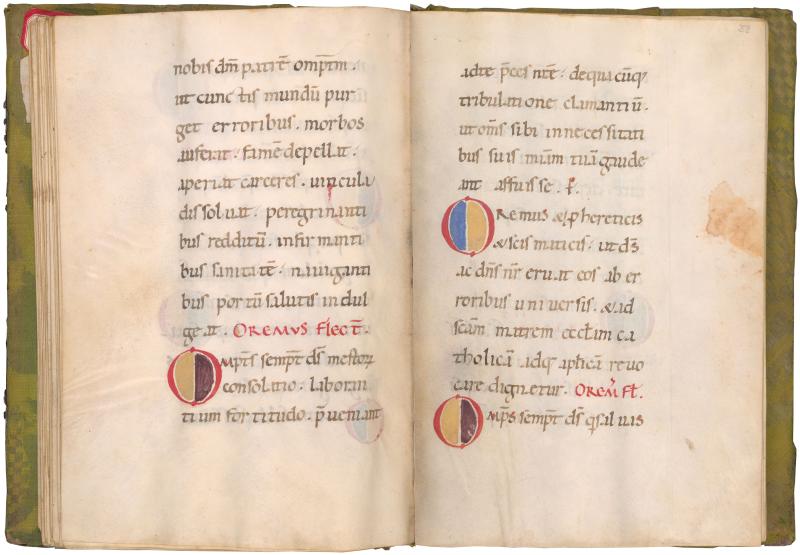 nobis dm̄ patrē omp̄tm̄.
ut cunctis mundū pur
get erroribus. morbos
auferat. famē depellat.
aperiat carceres. vincula
dissoluat. peregrinanti
bus redditū. infirmanti
bus sanitatē. nauiganti
bus portū salutis indul
geat. OREMUS Flect̄.
OMP̄TS sempt̄ ds̄ mestorꝝ
consolatio. laboran
tium fortitudo. p̄ueniant
adte p̄ces nr̄e. dequacūq;
tribulatione clamantiū.
ut om̄s sibi innecessitati
bus suis mīam tuā gaude
ant affuisse. ꝑ.
OREMUS & ꝓ hereticis
& scismaticis. ut ds̄
ac dn̄s nr̄ eruat eos ab er
roribus uniuersis. & ad
sc̄am matrem eccłm ca
tholicā adq; aplicā reuo
care dignetur. OREM̄ Fł.
OMP̄S sempt̄ ds̄ qsaluas